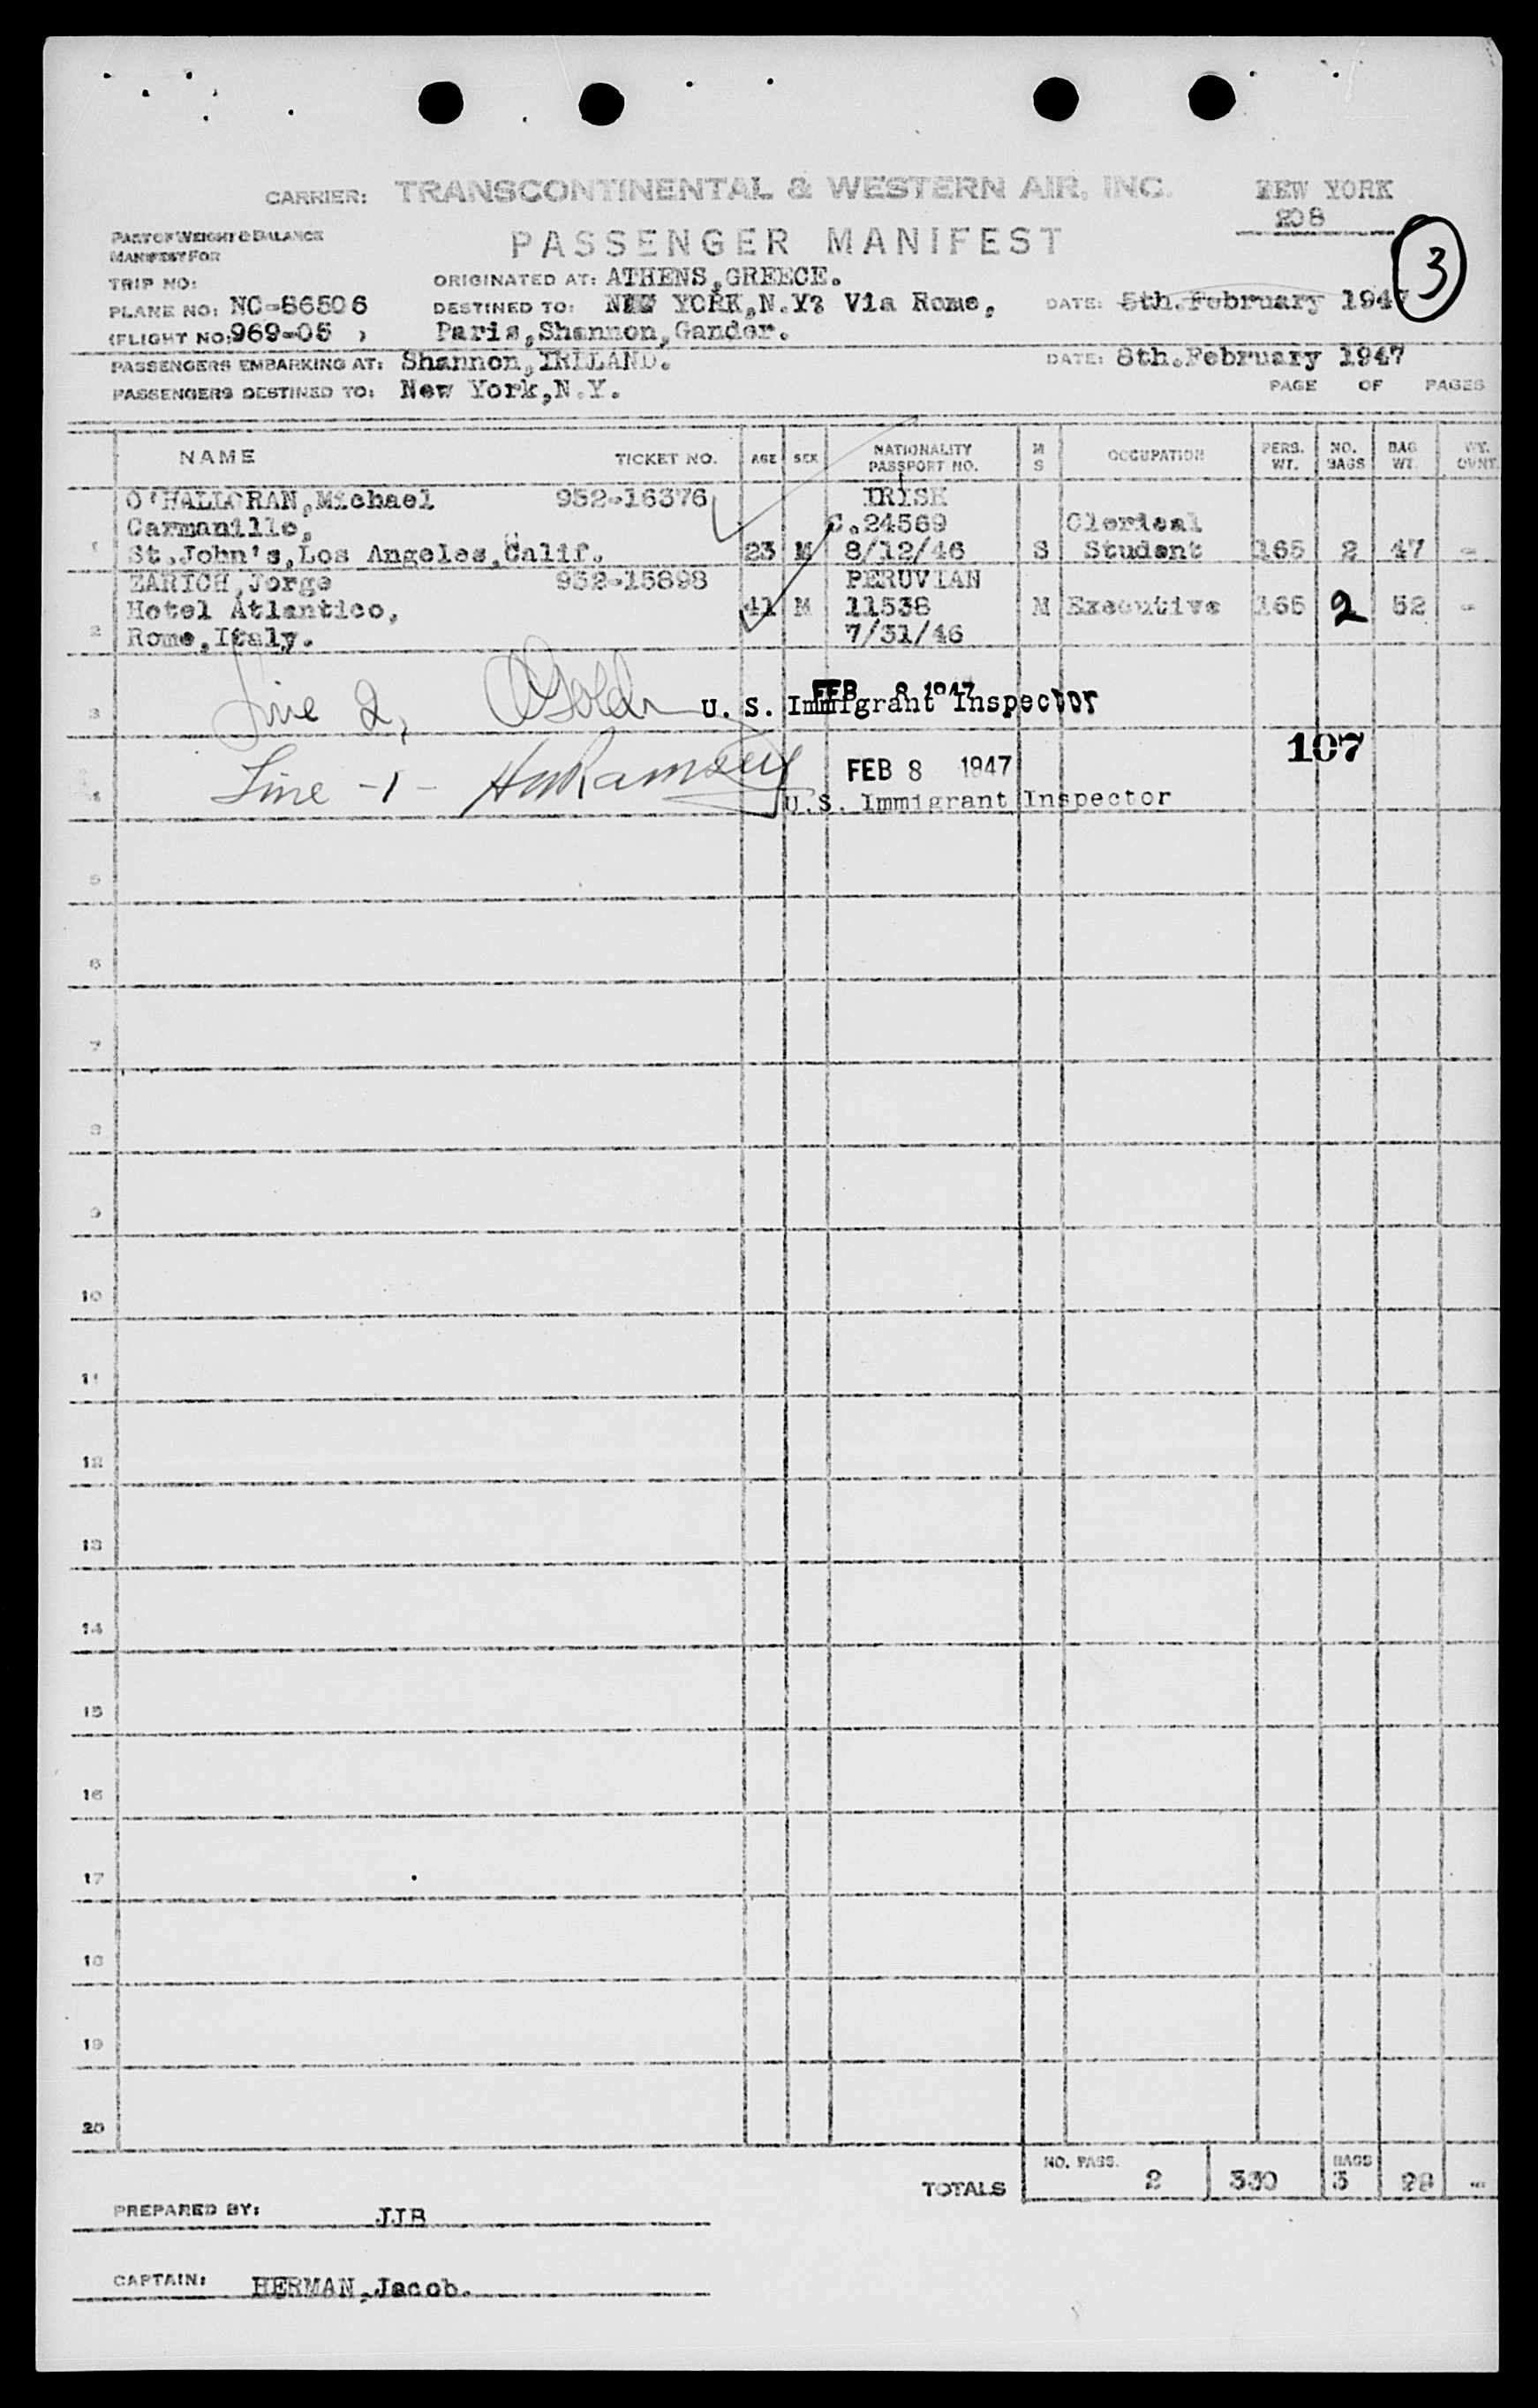 CARRIER: TRANSCONTINENTAL & WESTERN AIR, INC. NEW YORK
208
PART OF WEIGHT & BALANCE
MANIFEST FOR
PASSENGER MANIFEST
3
TRIP NO: ORIGINATED AT: ATHENS,GREECE.
PLANE NO: NC-86506 DESTINED TO: NEW YORK,N.Y. Via Rome, DATE: 5th.February 1947
(FLIGHT NO:969-05 ) Paris,Shannon,Gander.
PASSENGERS EMBARKING AT: Shannon,IRELAND. DATE: 8th.February 1947
PASSENGERS DESTINED TO: New York,N.Y. PAGE OF PAGES
NAME TICKET NO. AGE SEX NATIONALITY PASSPORT NO. M S OCCUPATION PERS. WT. NO. BAGS BAG WT. WT. OVNT.
O'HALLORAN,Michael 952-16376 IRISH
Carmanillo, C.24569 Clerical
1 St.John's,Los Angeles,Calif. 23 M 8/12/46 S Student 165 2 47 -
ZARICH,Jorge 952-15898 PERUVIAN
Hotel Atlantico, 41 M 11538 M Executive 165 2 52 -
2 Rome,Italy. 7/31/46
FEB 8 1947
3 Line 2, U. S. Immigrant Inspector
107
Line -1- HW Ramsey FEB 8 1947
4 U.S. Immigrant Inspector
5
6
7
8
9
10
11
12
13
14
15
16
17
18
19
20
TOTALS NO. PASS. 2 330 BAGS 3 -
PREPARED BY: JJB
CAPTAIN: HERMAN,Jacob.